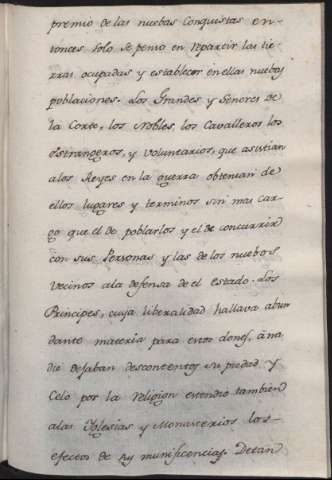 premio de las nuebas Conquistas en-
tonces solo se penso en repartir las tie-
rras ocupadas y establecer en ellas nuebas
poblaciones. Los Grandes y Señores de
la Corte, los Nobles, los Cavalleros los
estrangeros, y Voluntarios, que asistian
alos Reyes en la guerra obtenian de
ellos lugares y terminos sin mas car-
go que el de poblarlos y el de concurrir
con sus Personas y las de los nuebos
vecinos ala defensa de el estado. Los
Principes, cuya liberalidad hallava abun
dante materia para estos dones, âna
die dejaban descontentos su piedad y
Celo por la religion estendio tambien
alas Yglesias y Monasterios los
efectos de su munificencias. Detan